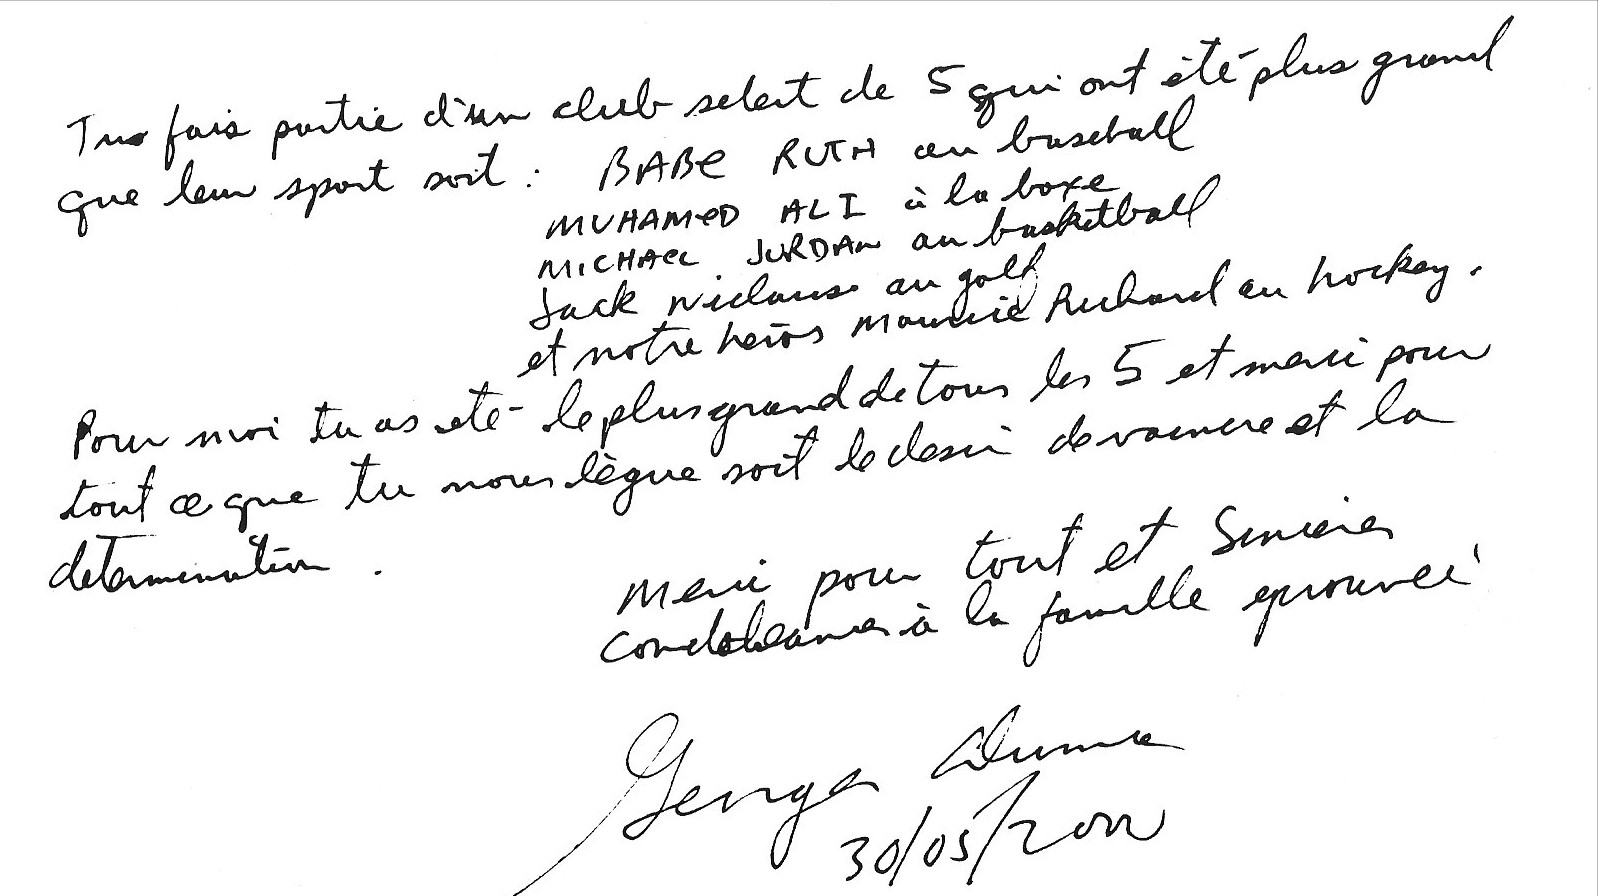 Tu fais partie d'un club select de 5 qui ont été plus grand
que leur sport soit : BABE RUTH au baseball
MUHAMED ALI à la boxe
MICHAEL JORDAN au basketball
Jack Niclauss au golf
et notre heros Maurice Richard au hockey.
Pour moi tu as eté le plus grand de tous les 5 et merci pour
tout ce que tu nous lègue soit le desir de vaincre et la
determination.
Merci pour tout et Sincères
condoleances à la famille eprouvée
Georges
30/05/2000